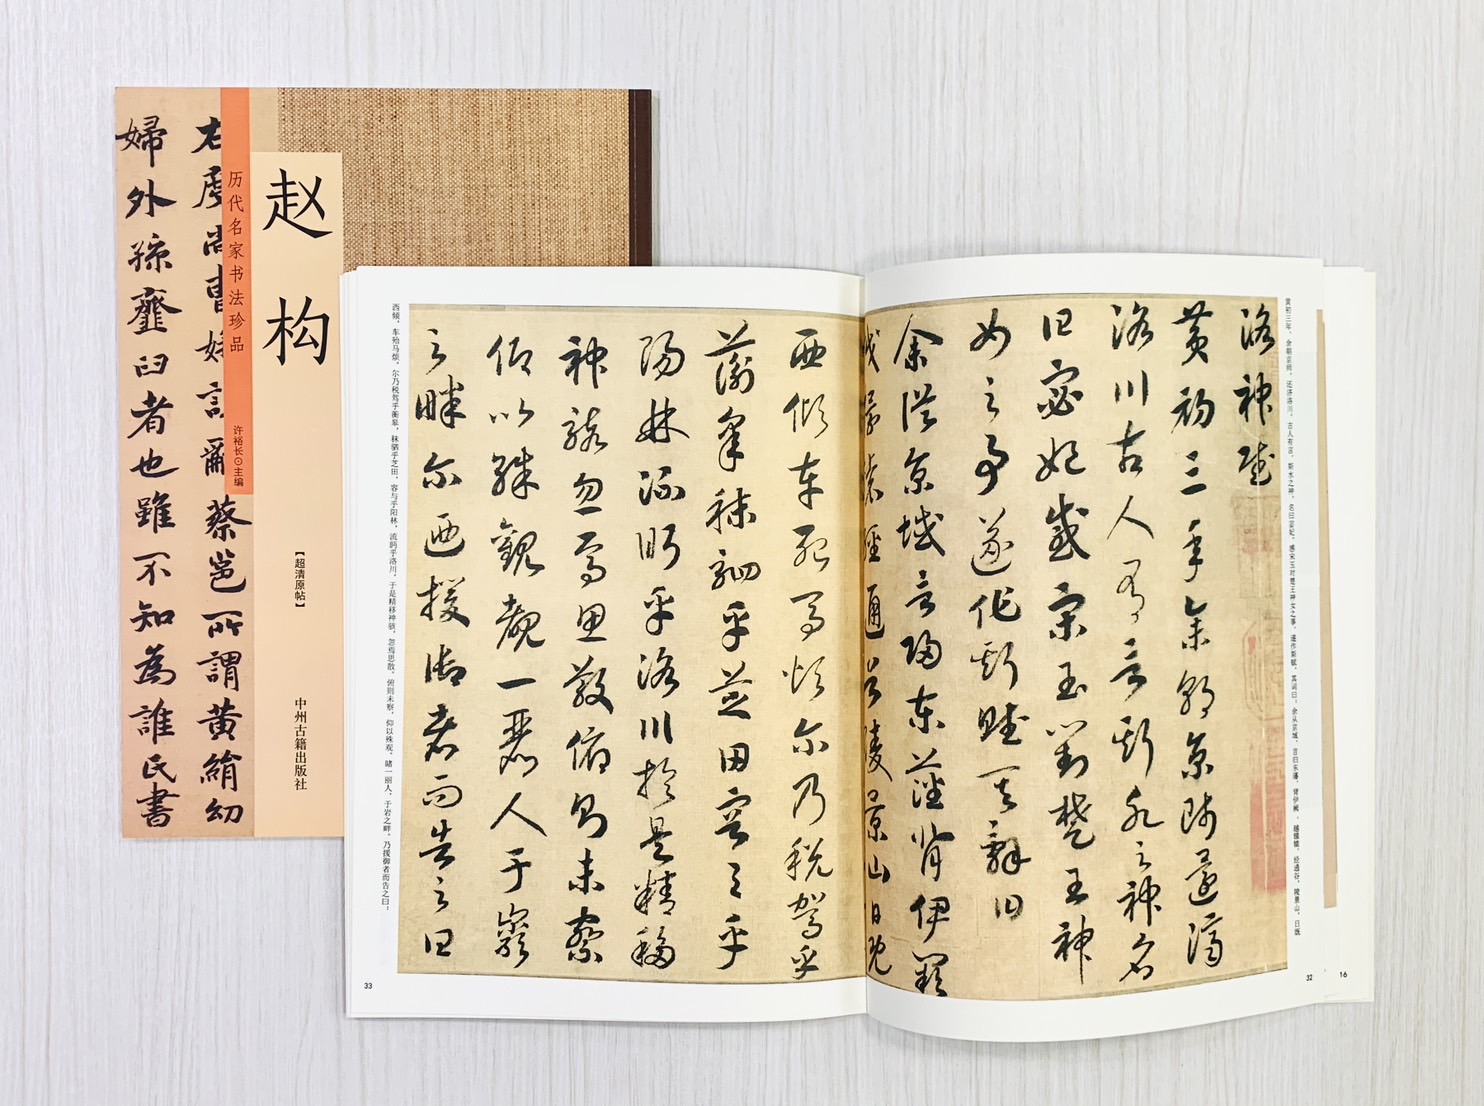 赵构
历代名家书法珍品
许裕长⊙主编
【超清原帖】
中州古籍出版社
右虞尚書
蔡邕所謂黄絹幼
婦外孫齏臼者也雖不知為誰氏書
洛神賦
黄初三年余朝京師還濟
洛川古人有言斯水之神名
曰宓妃感宋玉對楚王神
女之事遂作斯賦其辭曰
余從京域言歸東藩背伊闕
越轘轅經通谷陵景山日既
西傾車殆馬煩尔乃税駕乎
蘅皋秣駟乎芝田容與乎
陽林流眄乎洛川於是精移
神駭忽焉思散俯則未察
仰以殊觀覩一麗人于巖
之畔尔迺援御者而告之曰
黄初三年，余朝京师，还济洛川。古人有言，斯水之神，名曰宓妃。感宋玉对楚王神女之事，遂作斯赋，其词曰：余从京域，言归东藩，背伊阙，越轘辕，经通谷，陵景山。日既
32
16
西倾，车殆马烦。尔乃税驾乎蘅皋，秣驷乎芝田，容与乎阳林，流眄乎洛川。于是精移神骇，忽焉思散。俯则未察，仰以殊观。睹一丽人，于岩之畔。乃援御者而告之曰：
33